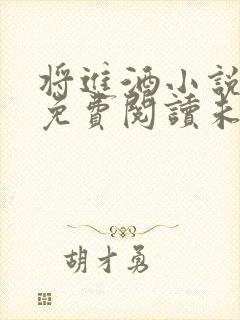 将進酒小說
免費閱讀未
胡才勇